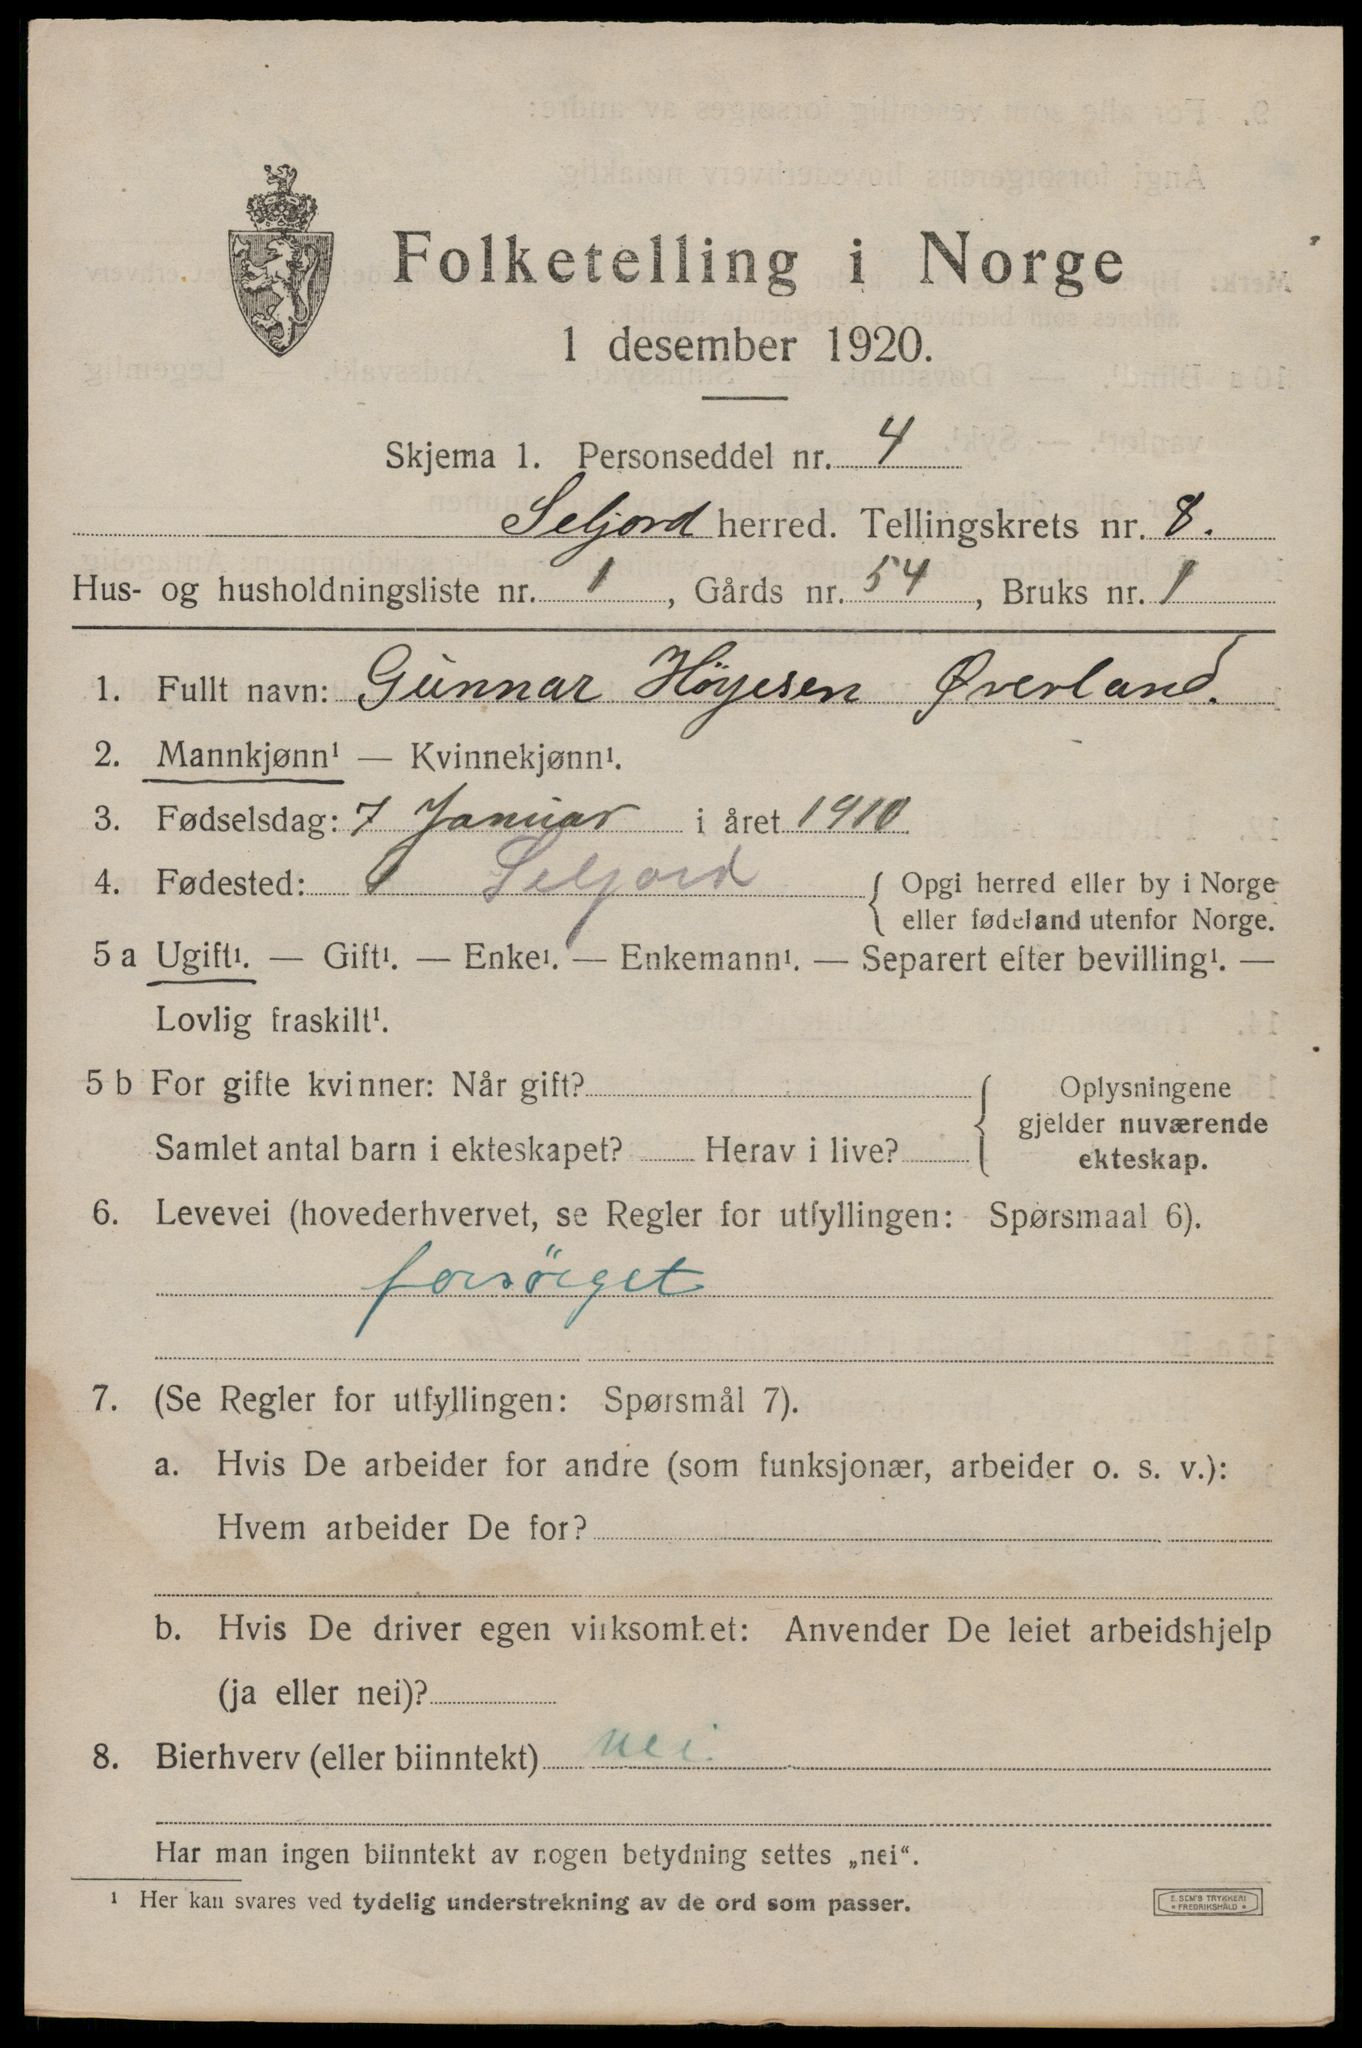 Folketelling i Norge
1 desember 1920.
Skjema 1. Personseddel nr. 4
Seljord herred. Tellingskrets nr. 8.
Hus- og husholdningsliste nr. 1, Gårds nr. 54, Bruks nr. 1
1. Fullt navn: Gunnar Höyesen Øverland.
2. Mannkjønn¹ — Kvinnekjønn¹.
3. Fødselsdag: 7 Januar i året 1910
4. Fødested: Seljord { Opgi herred eller by i Norge
eller fødeland utenfor Norge.
5 a Ugift¹. — Gift¹. — Enke¹. — Enkemann¹. — Separert efter bevilling¹. —
Lovlig fraskilt¹.
5 b For gifte kvinner: Når gift? { Oplysningene
gjelder nuværende
Samlet antal barn i ekteskapet? Herav i live? ekteskap.
6. Levevei (hovederhvervet, se Regler for utfyllingen: Spørsmaal 6).
forsörget
7. (Se Regler for utfyllingen: Spørsmål 7).
a. Hvis De arbeider for andre (som funksjonær, arbeider o. s. v.):
Hvem arbeider De for?
b. Hvis De driver egen virksomhet: Anvender De leiet arbeidshjelp
(ja eller nei)?
8. Bierhverv (eller biinntekt) nei.
Har man ingen biinntekt av nogen betydning settes „nei“.
¹ Her kan svares ved tydelig understrekning av de ord som passer.
E. SEM'S TRYKKERI
• FREDRIKSHALD •